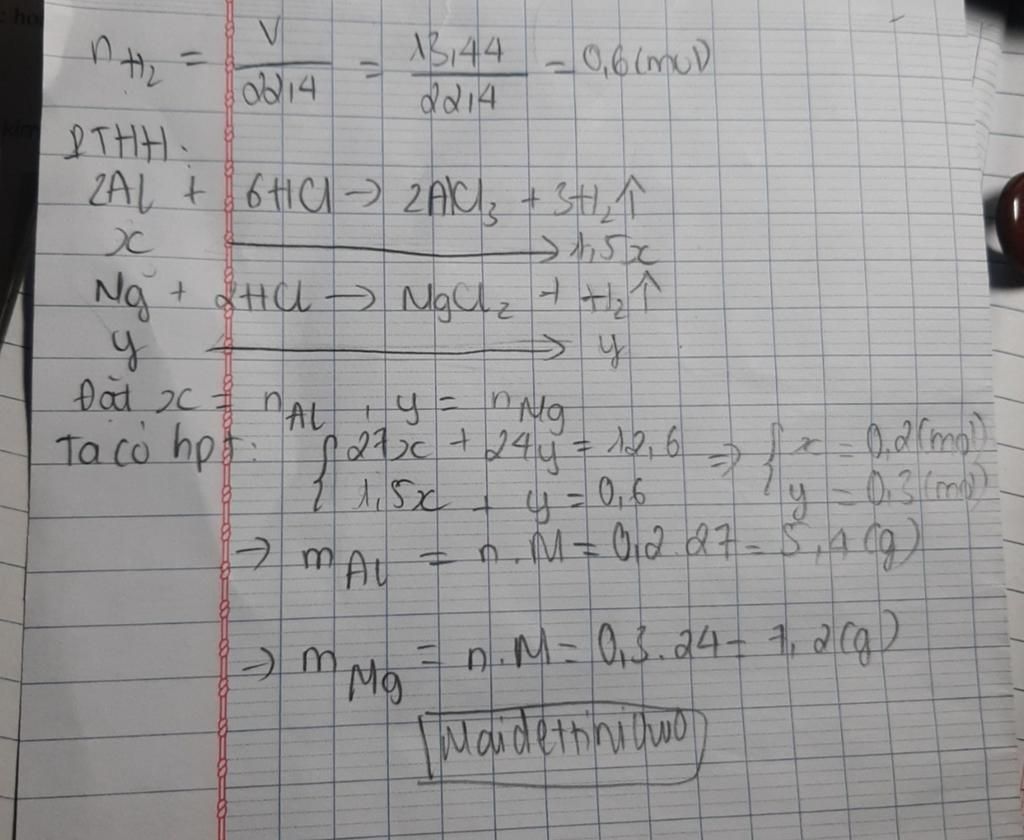 n H₂ = V/22,4 = 13,44/22,4 = 0,6 (mol)
PTHH:
2Al + 6HCl → 2AlCl₃ + 3H₂↑
x → 1,5x
Mg + 2HCl → MgCl₂ + H₂↑
y → y
Đặt x = n Al , y = n Mg
Ta có hpt: { 27x + 24y = 12,6 ⇒ { x = 0,2 (mol)
{ 1,5x + y = 0,6 { y = 0,3 (mol)
→ m Al = n.M = 0,2.27 = 5,4 (g)
→ m Mg = n.M = 0,3.24 = 7,2 (g)